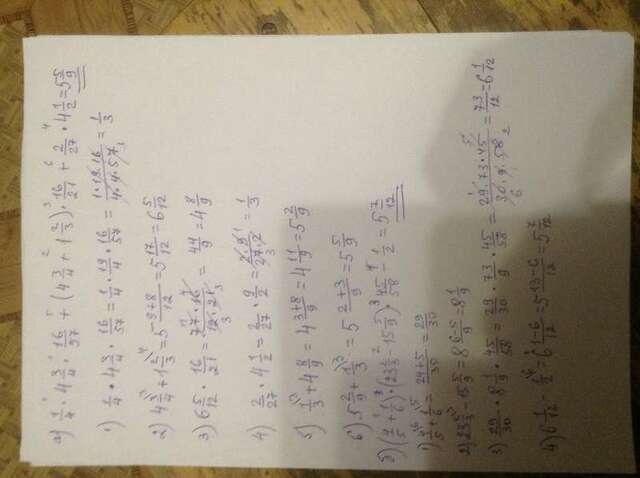 а) 1/4 · 4 3/4 · 16/57 + (4 3/4 + 1 2/3) · 16/21 + 2/27 · 4 1/2 = 5 5/9
1) 1/4 · 4 3/4 · 16/57 = 1/4 · 19/4 · 16/57 = 1·19·16/4·4·57 = 1/3
2) 4 3/4 + 1 2/3 = 5 9+8/12 = 5 17/12 = 6 5/12
3) 6 5/12 · 16/21 = 77·16/12·21 = 44/9 = 4 8/9
4) 2/27 · 4 1/2 = 2/27 · 9/2 = 2·9/27·2 = 1/3
5) 1/3 + 4 8/9 = 4 3+8/9 = 4 11/9 = 5 2/9
6) 5 2/9 + 1/3 = 5 2+3/9 = 5 5/9
б) (4/5 + 1/6) · (23 2/3 - 15 5/9) · 45/58 - 1/2 = 5 7/12
1) 4/5 + 1/6 = 24+5/30 = 29/30
2) 23 2/3 - 15 5/9 = 8 6-5/9 = 8 1/9
3) 29/30 · 8 1/9 · 45/58 = 29/30 · 73/9 · 45/58 = 29·73·45/30·9·58 = 73/12 = 6 1/12
4) 6 1/12 - 1/2 = 6 1-6/12 = 5 13-6/12 = 5 7/12